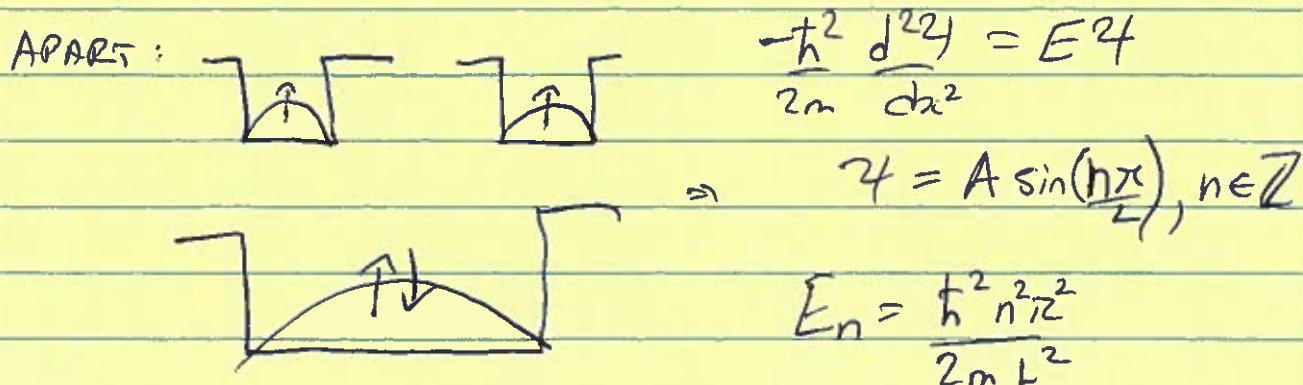 APART:
-ħ²/2m d²ψ/dx² = Eψ
⇒ ψ = A sin(nx/L), n∈ℤ
Eₙ = ħ²n²π²/2mL²